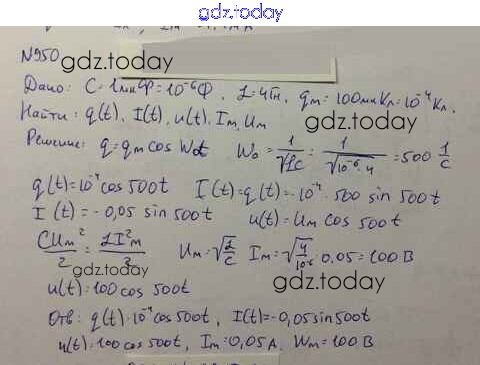 gdz.today
N950
gdz.today
Дано: C=1мкФ=10⁻⁶Ф, L=4Гн, qm=100мкКл=10⁻⁴Кл.
Найти: q(t), I(t), u(t), Im, Um
gdz.today
Решение: q=qm cos W₀t W₀=1/√LC=1/√10⁻⁶·4=500 1/c
q(t)=10⁻⁴cos 500t I(t)=q(t)=-10⁻⁴·500 sin 500t
I(t)=-0,05 sin 500t u(t)=Um cos 500t
CUm²/2=LI²m/2 Um=√L/C Im=√4/10⁻⁶·0.05=100В
gdz.today
u(t)=100cos 500t
gdz.today
Отв: q(t)=10⁻⁴cos500t, I(t)=-0,05sin500t
u(t)=100cos500t, Im=0,05А, Wm=100В
gdz.today